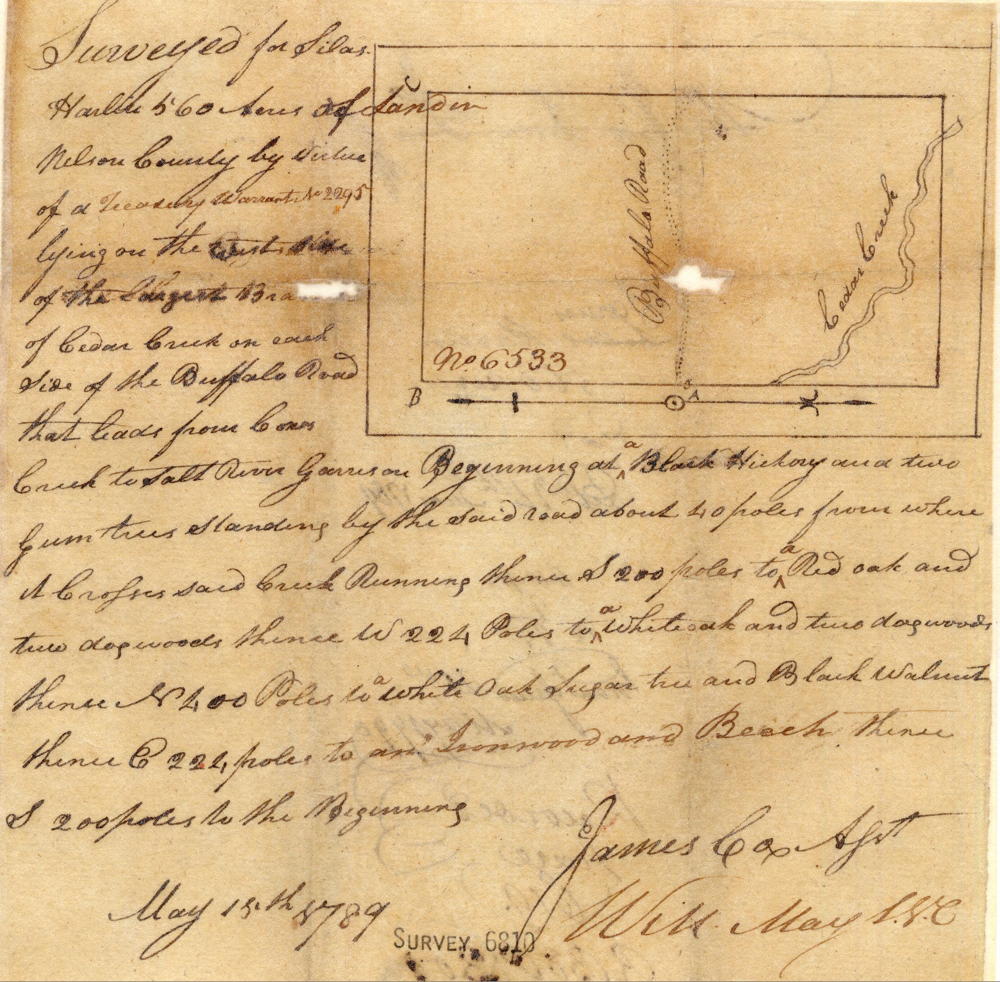 Surveyed for Silas
Harlin 560 Acres of Land in
Nelson County by Virtue
of a Treasury Warrant No 2295
lying on the West side
of the Largest Bra
of Cedar Creek on each
Side of the Buffalo Road
that leads from Coxes
Creek to Salt River Garrison Beginning at a Black Hickory and two
Gum trees standing by the said road about 40 poles from where
it Crosses said Creek Running thence S 200 poles to a Red oak and
two dogwoods thence W 224 Poles to a White oak and two dogwoods
thence N 400 Poles to a White Oak Sugar tree and Black Walnut
thence E 224 poles to an Ironwood and Beech thence
S 200 poles to the Beginning
James Cox Asst
May 15th 1789
Will May SNC
SURVEY 6810
C
Buffalo Road
Cedar Creek
No. 6533
B
A